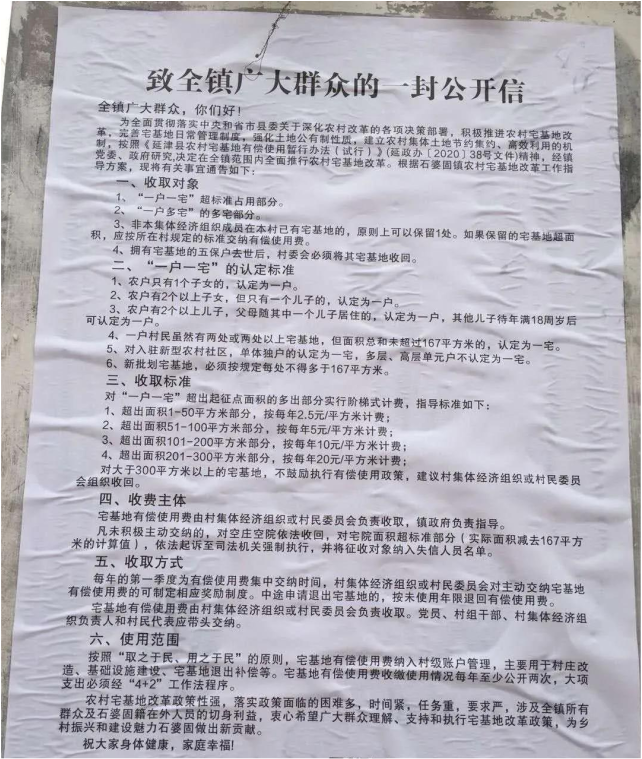 致全镇广大群众的一封公开信
全镇广大群众，你们好！
为全面贯彻落实中央和省市县委关于深化农村改革的各项决策部署，积极推进农村宅基地改
革，完善宅基地日常管理制度，强化土地公有制性质，建立农村集体土地节约集约、高效利用的机
制，按照《延津县农村宅基地有偿使用暂行办法（试行）》（延政办〔2020〕38号文件）精神，经镇
党委、政府研究，决定在全镇范围内全面推行农村宅基地改革。根据石婆固镇农村宅基地改革工作指
导方案，现将有关事宜通告如下：
一、收取对象
1、“一户一宅”超标准占用部分。
2、“一户多宅”的多宅部分。
3、非本集体经济组织成员在本村已有宅基地的，原则上可以保留1处。如果保留的宅基地超面
积，应按所在村规定的标准交纳有偿使用费。
4、拥有宅基地的五保户去世后，村委会必须将其宅基地收回。
二、“一户一宅”的认定标准
1、农户只有1个子女的，认定为一户。
2、农户有2个以上子女，但只有一个儿子的，认定为一户。
3、农户有2个以上儿子，父母随其中一个儿子居住的，认定为一户，其他儿子待年满18周岁后
可认定为一户。
4、一户村民虽然有两处或两处以上宅基地，但面积总和未超过167平方米的，认定为一宅。
5、对入驻新型农村社区，单体独户的认定为一宅，多层、高层单元户不认定为一宅。
6、新批划宅基地，必须按规定每处不得多于167平方米。
三、收取标准
对“一户一宅”超出起征点面积的多出部分实行阶梯式计费，指导标准如下：
1、超出面积1-50平方米部分，按每年2.5元/平方米计费；
2、超出面积51-100平方米部分，按每年5元/平方米计费；
3、超出面积101-200平方米部分，按每年10元/平方米计费；
4、超出面积201-300平方米部分，按每年20元/平方米计费；
对大于300平方米以上的宅基地，不鼓励执行有偿使用政策，建议村集体经济组织或村民委员
会组织收回。
四、收费主体
宅基地有偿使用费由村集体经济组织或村民委员会负责收取，镇政府负责指导。
凡未积极主动交纳的，对空庄空院依法收回，对宅院面积超标准部分（实际面积减去167平方
米的计算值），依法起诉至司法机关强制执行，并将征收对象纳入失信人员名单。
五、收取方式
每年的第一季度为有偿使用费集中交纳时间，村集体经济组织或村民委员会对主动交纳宅基地
有偿使用费的可制定相应奖励制度。中途申请退出宅基地的，按未使用年限退回有偿使用费。
宅基地有偿使用费由村集体经济组织或村民委员会负责收取。党员、村组干部、村集体经济组
织负责人和村民代表应带头交纳。
六、使用范围
按照“取之于民、用之于民”的原则，宅基地有偿使用费纳入村级账户管理，主要用于村庄改
造、基础设施建设、宅基地退出补偿等。宅基地有偿使用费收缴使用情况每年至少公开两次，大项
支出必须经“4+2”工作法程序。
农村宅基地改革政策性强，落实政策面临的困难多，时间紧，任务重，要求严，涉及全镇所有
群众及石婆固籍在外人员的切身利益，衷心希望广大群众理解、支持和执行宅基地改革政策，为乡
村振兴和建设魅力石婆固做出新贡献。
祝大家身体健康，家庭幸福！